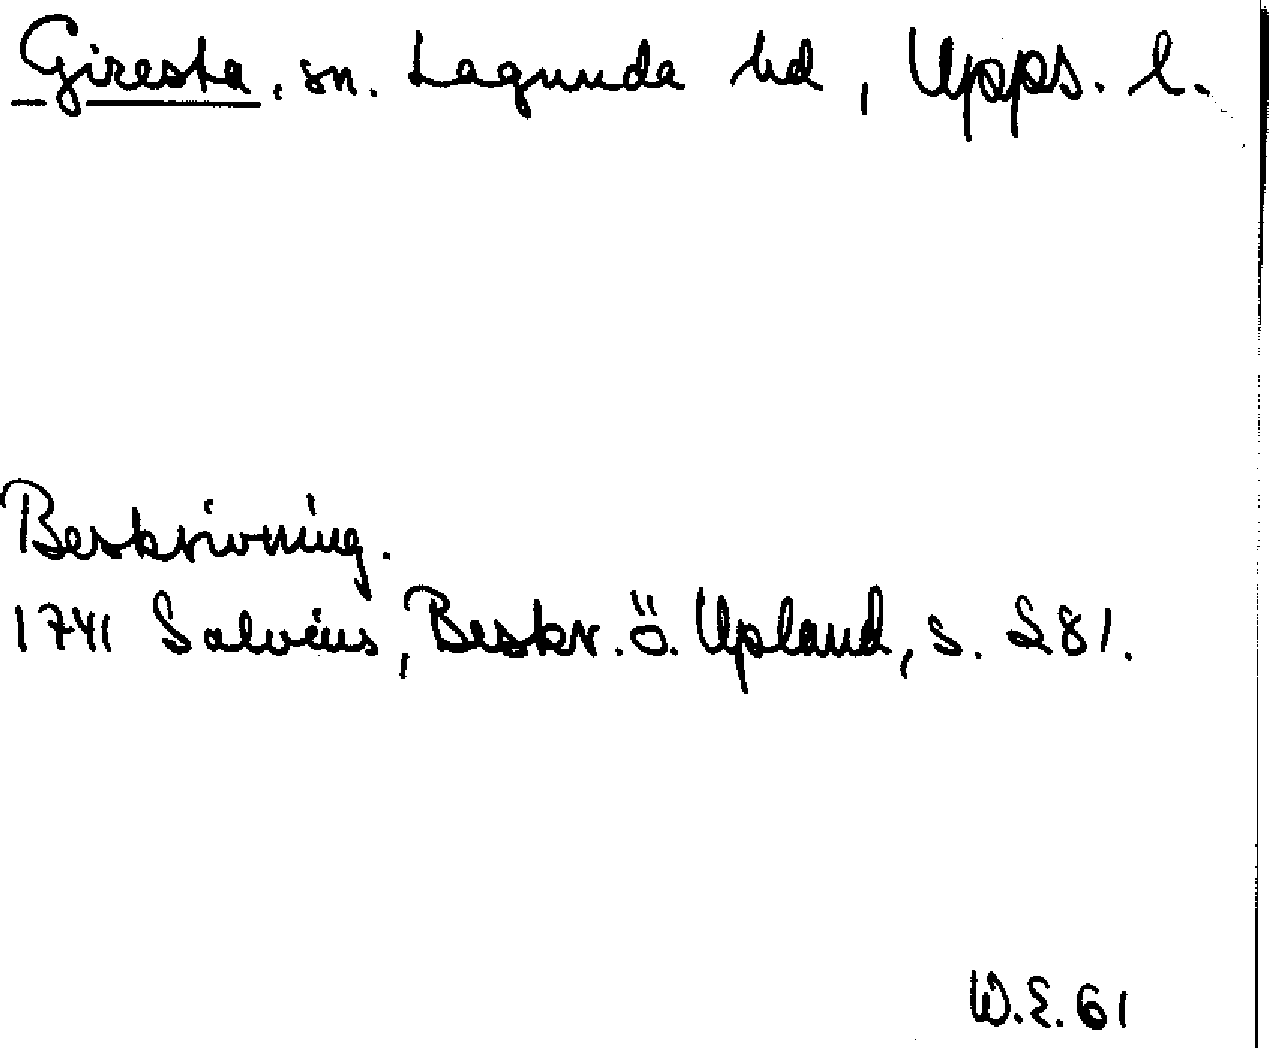 Giresta, sn. Lagunda hd, Upps. l.
Beskrivning.
1741 Salvius, Beskr. ö. Upland, s. 281.
W.E. 61